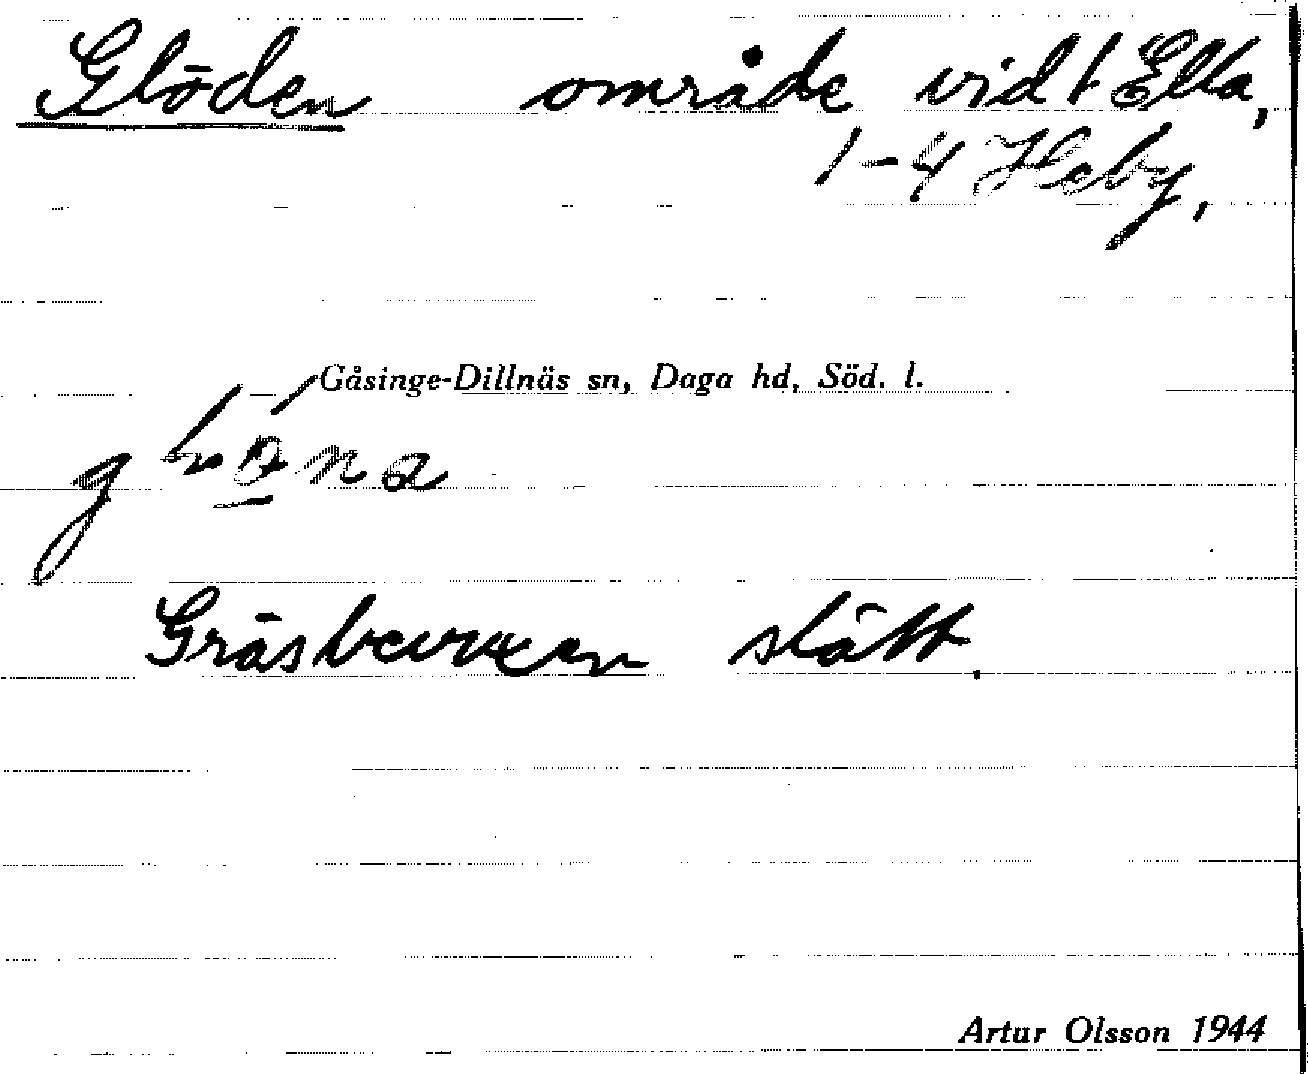 Glöden område vid t Ella,
1-4 Heby,
Gåsinge-Dillnäs sn, Daga hd, Söd. l.
Gräsbevuxen slätt.
Artur Olsson 1944